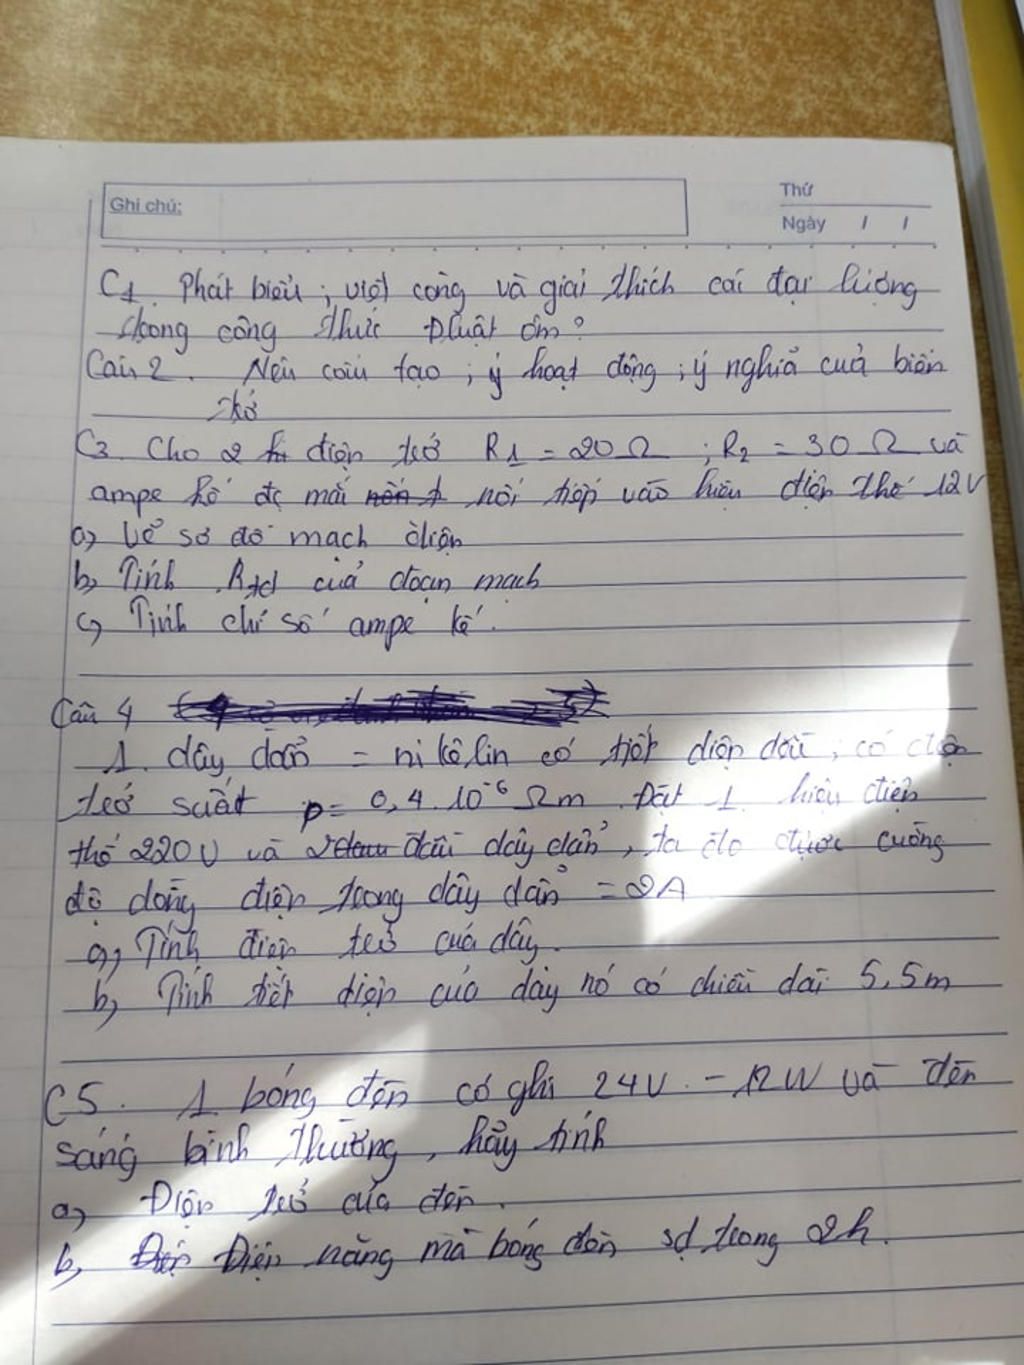 Ghi chú:
Thứ
Ngày / /
C1. Phát biểu, viết công và giải thích các đại lượng
trong công thức Định luật ôm?
Câu 2. Nêu cấu tạo; ý hoạt động; ý nghĩa của biến
trở
C3. Cho 2 điện trở R1 = 20Ω; R2 = 30Ω và
ampe kế đc mắc nối tiếp vào hiệu điện thế 12V
a) Vẽ sơ đồ mạch điện
b, Tính Rtđ của đoạn mạch
c, Tính chỉ số ampe kế.
Câu 4
1. dây dẫn = ni kê lin có tiết diện đều, có điện
trở suất ρ = 0,4.10⁻⁶ Ωm. Đặt 1 hiệu điện
thế 220V và 2 đầu dây dẫn, ta đo được cường
độ dòng điện trong dây dẫn = 2A
a, Tính điện trở của dây.
b, Tính tiết diện của dây nó có chiều dài 5,5m
C5. 1 bóng đèn có ghi 24V - 12W và đèn
sáng bình thường, hãy tính
a, Điện trở của đèn.
b, Điện năng mà bóng đèn sd trong 2h.